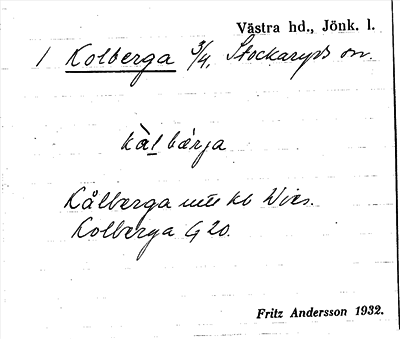 Västra hd., Jönk. l.
1 Kolberga 3/4, Stockaryds sn.
kàl bǽrja
Kålberga kb
Kolberga G 20.
Fritz Andersson 1932.